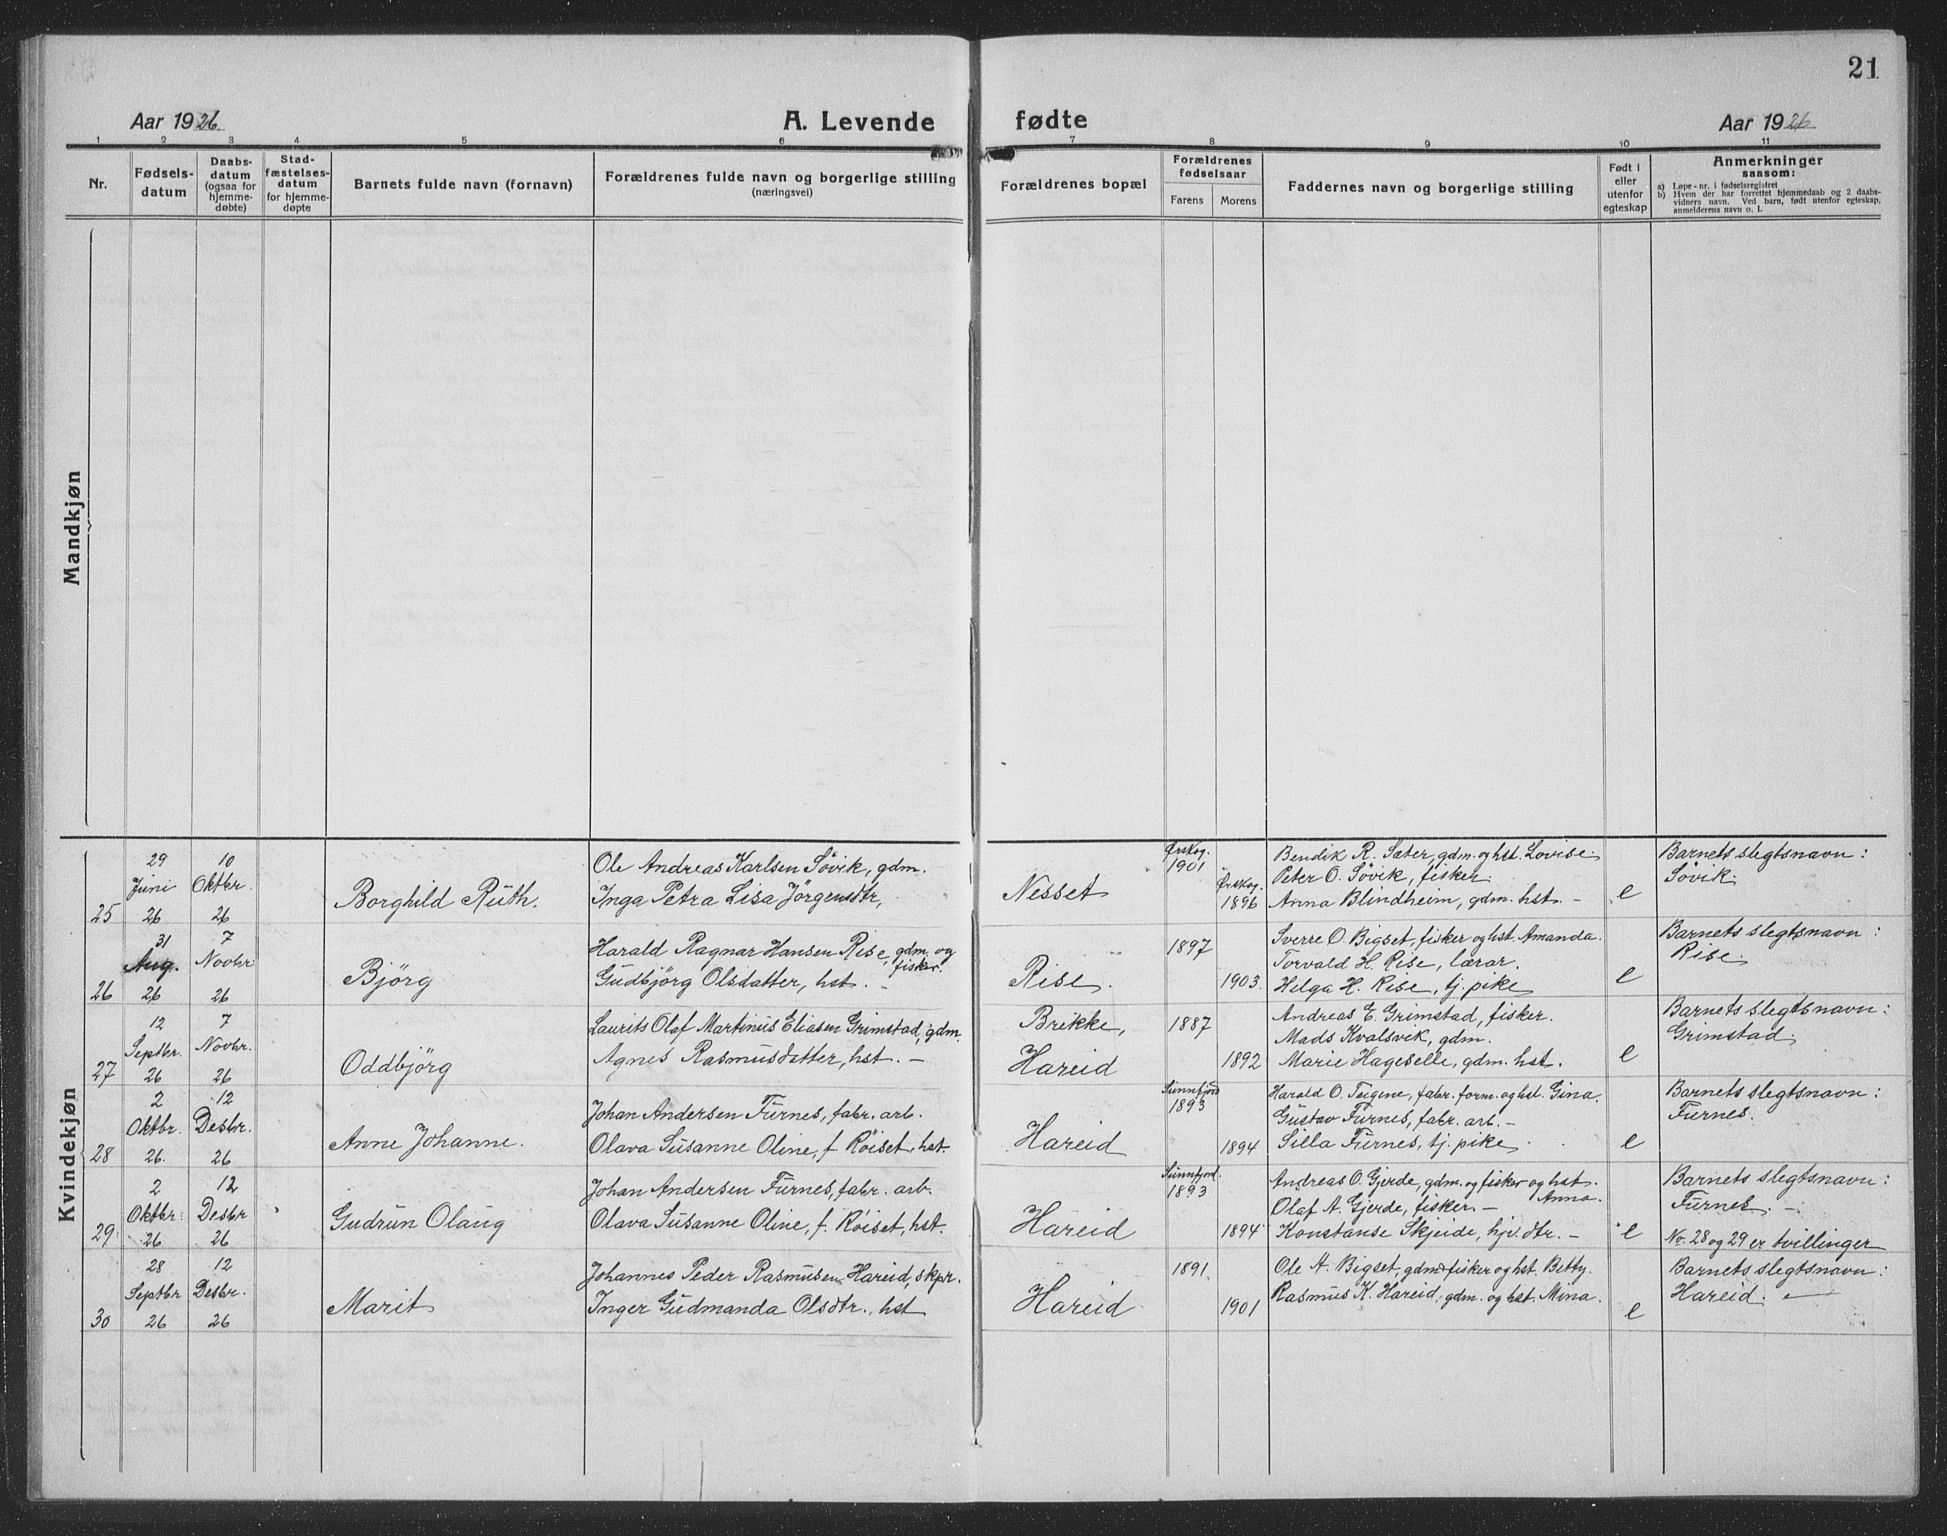 21
Aar 1926
A. Levende fødte
Aar 1926
1 2 3 4 5 6 7 8 9 10 11
Nr.
Fødsels-
datum
Daabs-
datum
(ogsaa for
hjemme-
døbte)
Stad-
fæstelses-
datum
for hjemme-
døpte
Barnets fulde navn (fornavn)
Forældrenes fulde navn og borgerlige stilling
(næringsvei)
Forældrenes bopæl
Forældrenes
fødselsaar
Farens Morens
Faddernes navn og borgerlige stilling
Født i
eller
utenfor
egteskap
Anmerkninger
saasom:
a) Løpe-nr. i fødselsregistret
b) Hvem der har forrettet hjemmedaab og 2 daabs-
vidners navn. Ved barn, født utenfor egteskap,
anmelderens navn o. l.
Mandkjøn
Kvindekjøn
25
29
Juni
26
10
Oktbr.
26
Borghild Ruth.
Ole Andreas Karlsen Sövik, gdm.
Inga Petra Lisa Jörgensdtr,
Nesset
Ørskog.
1901
Ørskog.
1896
Bendik R. Sæter, gdm. og hst. Lovise.
Peter O. Sövik, fisker.
Anna Blindheim, gdm. hst. -
e
Barnets slegtsnavn:
Sövik.
26
31
Aug.
26
7
Novbr.
26
Björg
Harald Ragnar Hansen Rise, gdm. og
fisker.
Gudbjörg Olsdatter, hst. -
Rise.
1897
1903.
Sverre O. Bigset, fisker og hst. Amanda.
Torvald H. Rise, lærar.
Helga H. Rise, tj. pike
e
Barnets slegtsnavn:
Rise.
27
12
Septbr.
26
7
Novbr.
26
Oddbjörg
Laurits Olaf Martinus Eliasen Grimstad, gdm.
Agnes Rasmusdatter, hst. -
Brikke,
Hareid
1887
1892
Andreas E. Grimstad, fisker.
Mads Kvalsvik, gdm.
Marie Hageselle, gdm. hst.
e
Barnets slegtsnavn:
Grimstad.
28
2
Oktbr.
26.
12
Desbr.
26
Anne Johanne.
Johan Andersen Furnes, fabr. arb.
Olava Susanne Oline, f. Röiset, hst.
Hareid
Sunnfjord
1893
1894
Harald O. Teigene, fabr. form. og hst. Gina.
Gustav Furnes, fabr. arb. -
Silla Furnes, tj. pike
e
Barnets slegtsnavn:
Furnes.
29
2
Oktbr.
26
12
Desbr
26
Gudrun Olaug
Johan Andersen Furnes, fabr. arb.
Olava Susanne Oline, f. Röiset, hst.
Hareid
Sunnfjord.
1893
1894
Andreas O. Gjerde, gdm. og fisker og hst.
Anna.
Olaf A. Gjerde, fisker -
Konstanse Skjeide, hjv. dtr. -
e
Barnets slegtsnavn:
Furnes. -
No. 28 og 29 er tvillinger
30
28
Septbr
26
12
Desbr.
26
Marit
Johannes Peder Rasmusen Hareid, skpr.
Inger Gudmanda Olsdtr., hst
Hareid.
1891
1901
Ole A. Bigset, gdm. fisker og hst. Betty.
Rasmus K. Hareid, gdm. og hst. Mina.
e
Barnets slegtsnavn:
Hareid. -